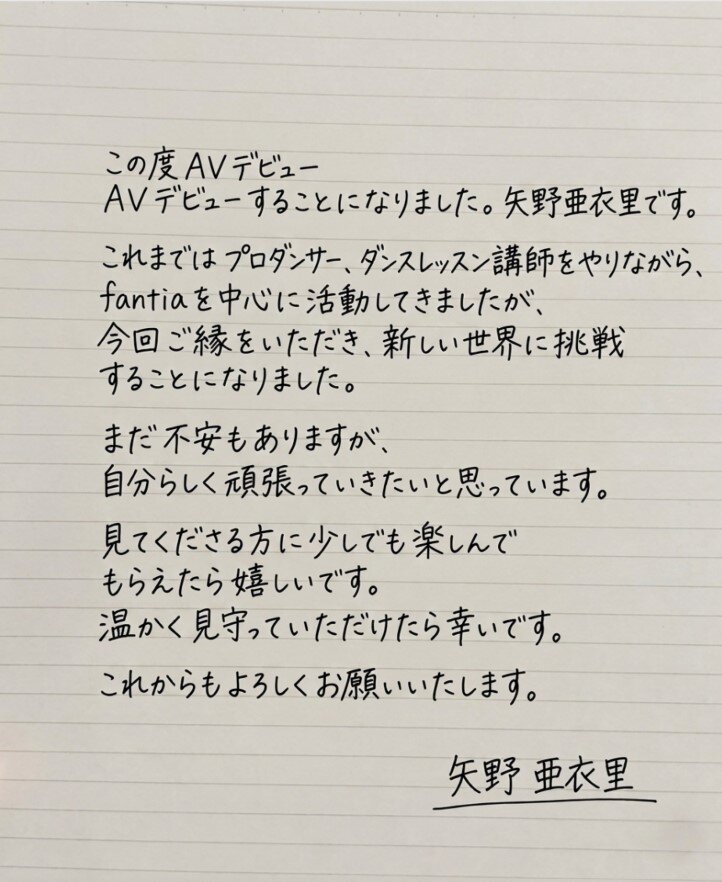 この度AVデビュー
AVデビューすることになりました。矢野亜衣里です。
これまではプロダンサー、ダンスレッスン講師をやりながら、
fantiaを中心に活動してきましたが、
今回ご縁をいただき、新しい世界に挑戦
することになりました。
まだ不安もありますが、
自分らしく頑張っていきたいと思っています。
見てくださる方に少しでも楽しんで
もらえたら嬉しいです。
温かく見守っていただけたら幸いです。
これからもよろしくお願いいたします。
矢野 亜衣里